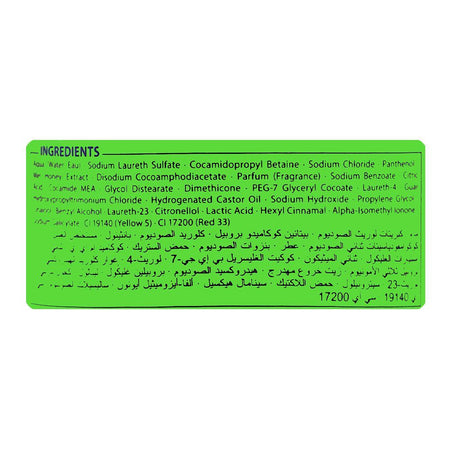 INGREDIENTS
Aqua (Water, Eau) · Sodium Laureth Sulfate · Cocamidopropyl Betaine · Sodium Chloride · Panthenol
Honey Extract · Disodium Cocoamphodiacetate · Parfum (Fragrance) · Sodium Benzoate · Citric
Acid · Cocamide MEA · Glycol Distearate · Dimethicone · PEG-7 Glyceryl Cocoate · Laureth-4 · Guar
Hydroxypropyltrimonium Chloride · Hydrogenated Castor Oil · Sodium Hydroxide · Propylene Glycol
Benzyl Alcohol · Laureth-23 · Citronellol · Lactic Acid · Hexyl Cinnamal · Alpha-Isomethyl Ionone
CI 19140 (Yellow 5) · CI 17200 (Red 33)
كبريتات لوريث الصوديوم · بيتائين كوكاميدو بروبيل · كلوريد الصوديوم · بانثينول
ثنائي الصوديوم · عطر · بنزوات الصوديوم · حمض الستريك
ستيرات الغليكول · ثنائي الميثيكون · كوكيت الغليسريل بي إي جي-7 · لوريث-4 · غوار
بروبيل ثلاثي الأمونيوم · زيت خروع مهدرج · هيدروكسيد الصوديوم · بروبيلين غليكول
لوريث-23 · سيترونيلول · حمض اللاكتيك · سينامال هيكسيل · ألفا-أيزوميثيل أيونون
19140 · سي آي 17200